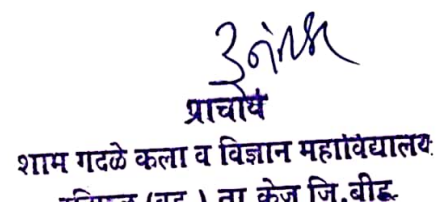 प्राचार्य
शाम गदळे कला व विज्ञान महाविद्यालय
ता केज जि.बीड